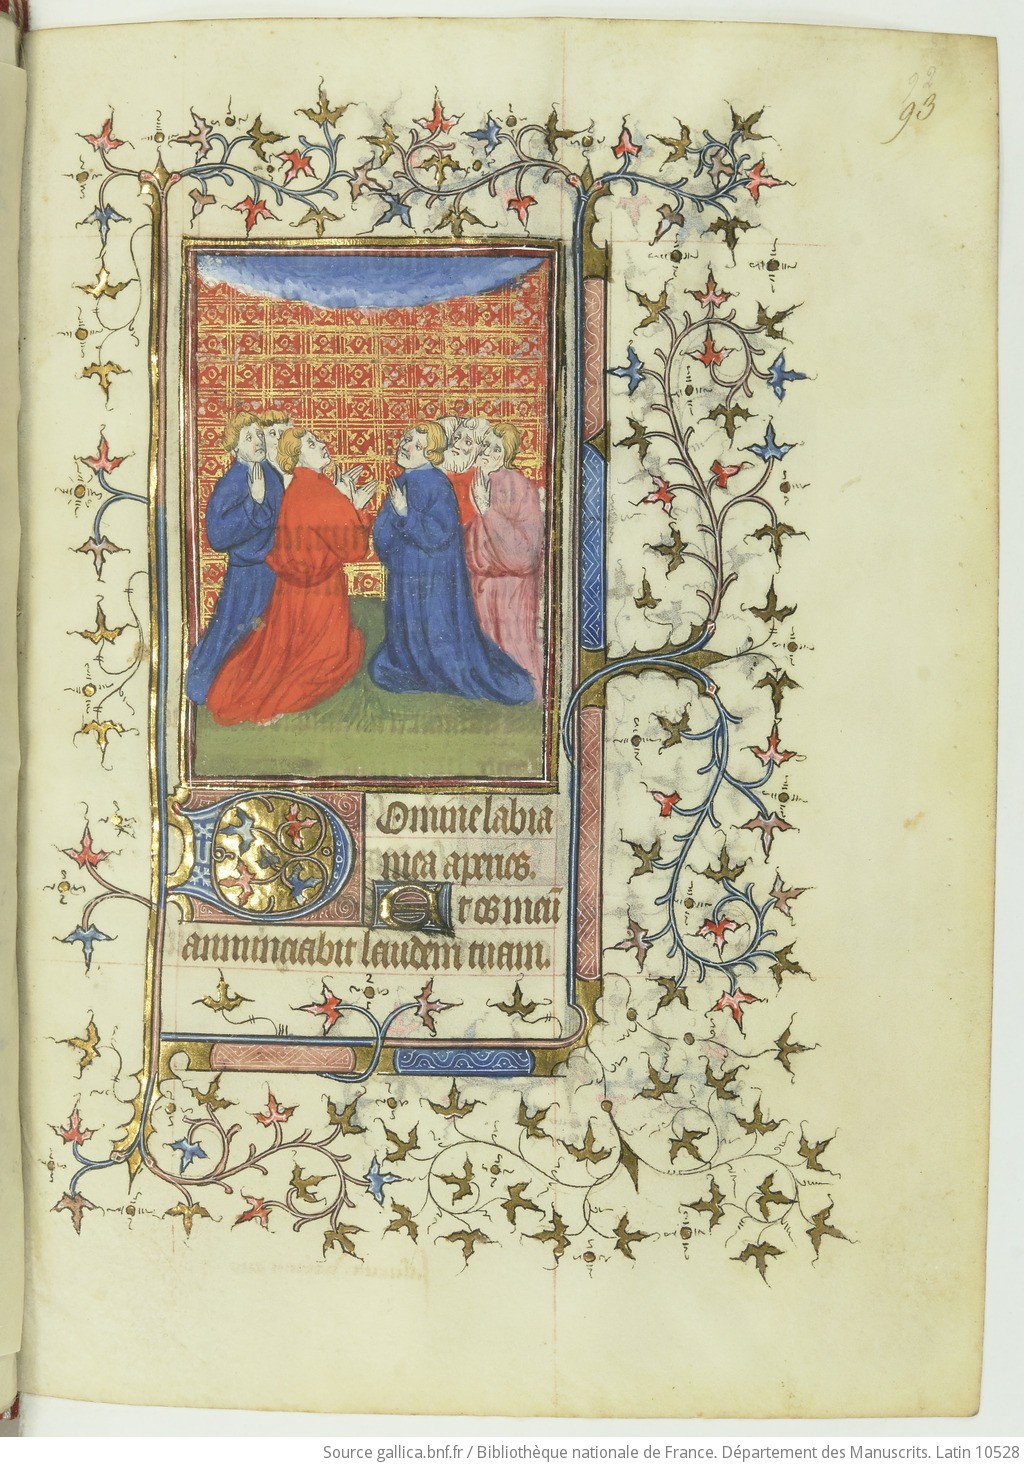 92
93
Domine labia
mea aperies.
Et os meū
annunciabit laudem tuam.
Source gallica.bnf.fr / Bibliothèque nationale de France. Département des Manuscrits. Latin 10528